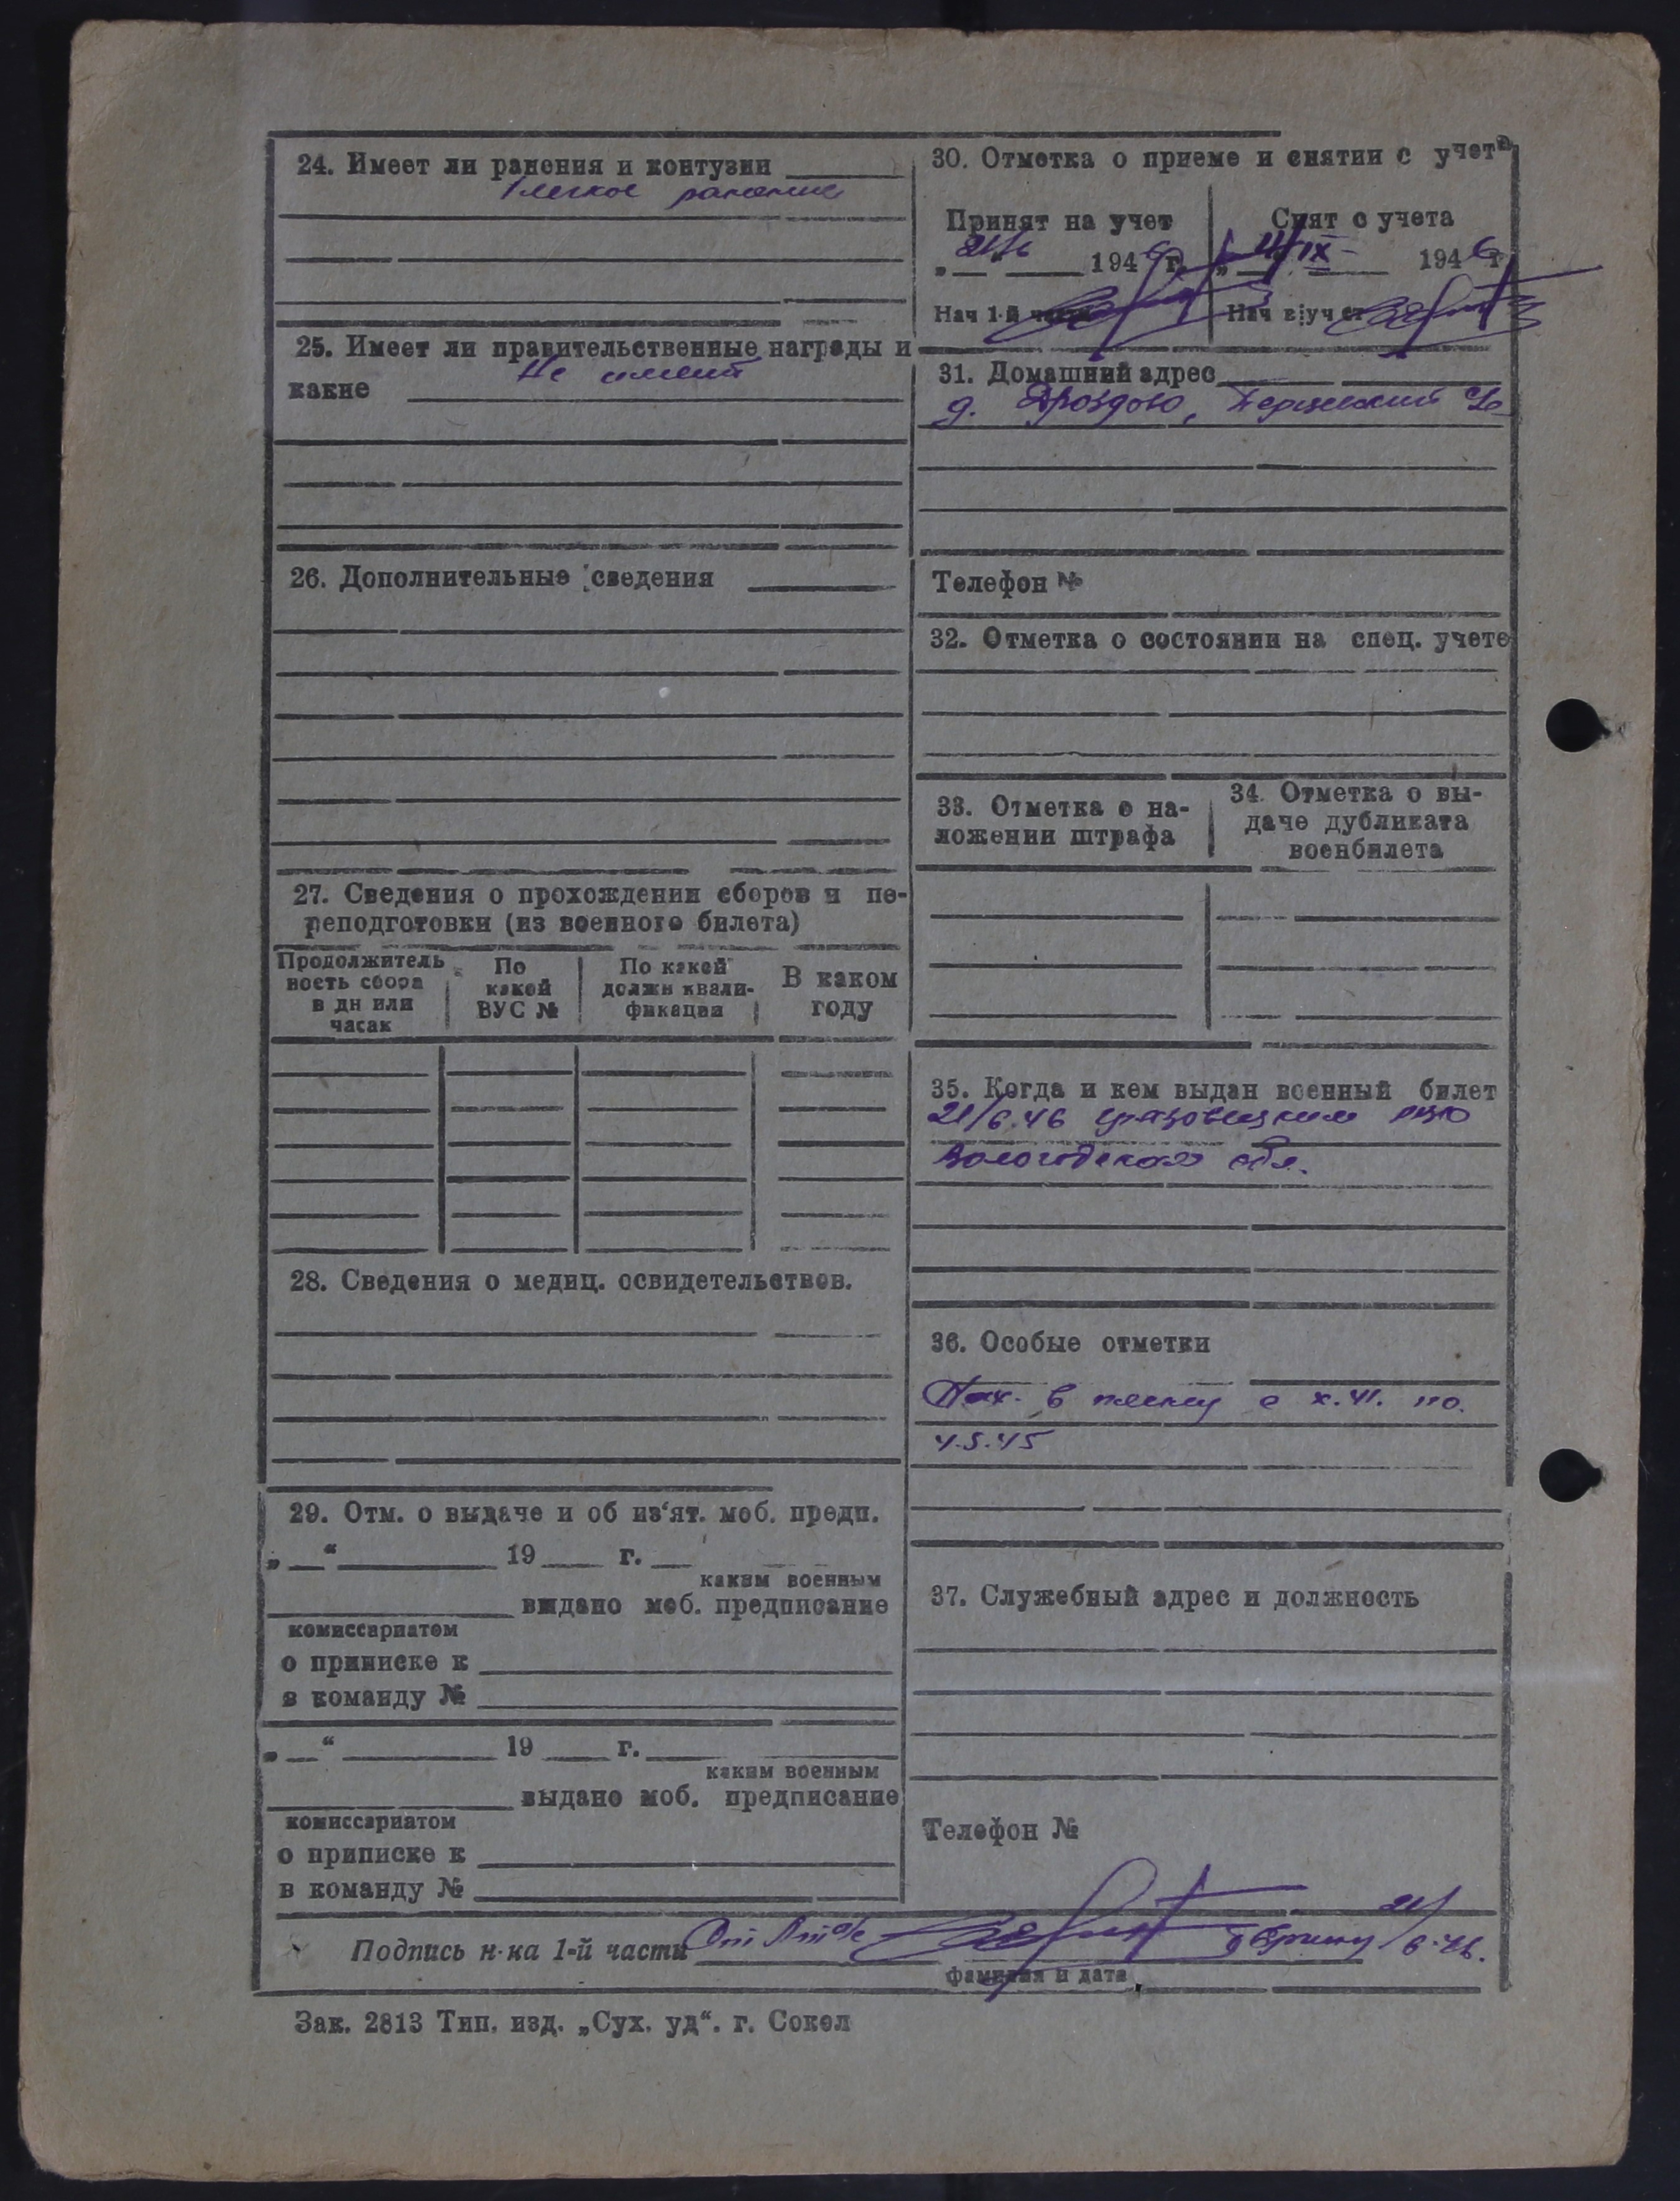 24. Имеет ли ранения и контузии
1 легкое ранение
25. Имеет ли правительственные награды и
какие Не имеет
26. Дополнительные сведения
27. Сведения о прохождении сборов и пе-
реподготовки (из военного билета)
Продолжитель
ность сбора
в дн или
часах
По
какой
ВУС №
По какой
должн квали-
фикации
В каком
году
28. Сведения о медиц. освидетельствов.
29. Отм. о выдаче и об из‘ят. моб. предп.
„ “ 19 г.
каким военным
выдано моб. предписание
комиссариатом
о приписке к
в команду №
„ “ 19 г.
каким военным
выдано моб. предписание
комиссариатом
о приписке к
в команду №
30. Отметка о приеме и снятии с учета
Принят на учет
21/6 1946 г.
Нач 1-й части
Снят с учета
IX 1946 г
Нач в/уч ст
31. Домашний адрес
д. Дроздово,
Телефон №
32. Отметка о состоянии на спец. учете
33. Отметка о на-
ложении штрафа
34. Отметка о вы-
даче дубликата
военбилета
35. Когда и кем выдан военный билет
21/6.46 Грязовецким РВК
Вологодской обл.
36. Особые отметки
Нах. в плену с X.41. по.
4.5.45
37. Служебный адрес и должность
Телефон №
Подпись н-ка 1-й части 21/6.46.
фамилия и дата
Зак. 2813 Тип. изд. „Сух. уд“. г. Сокол